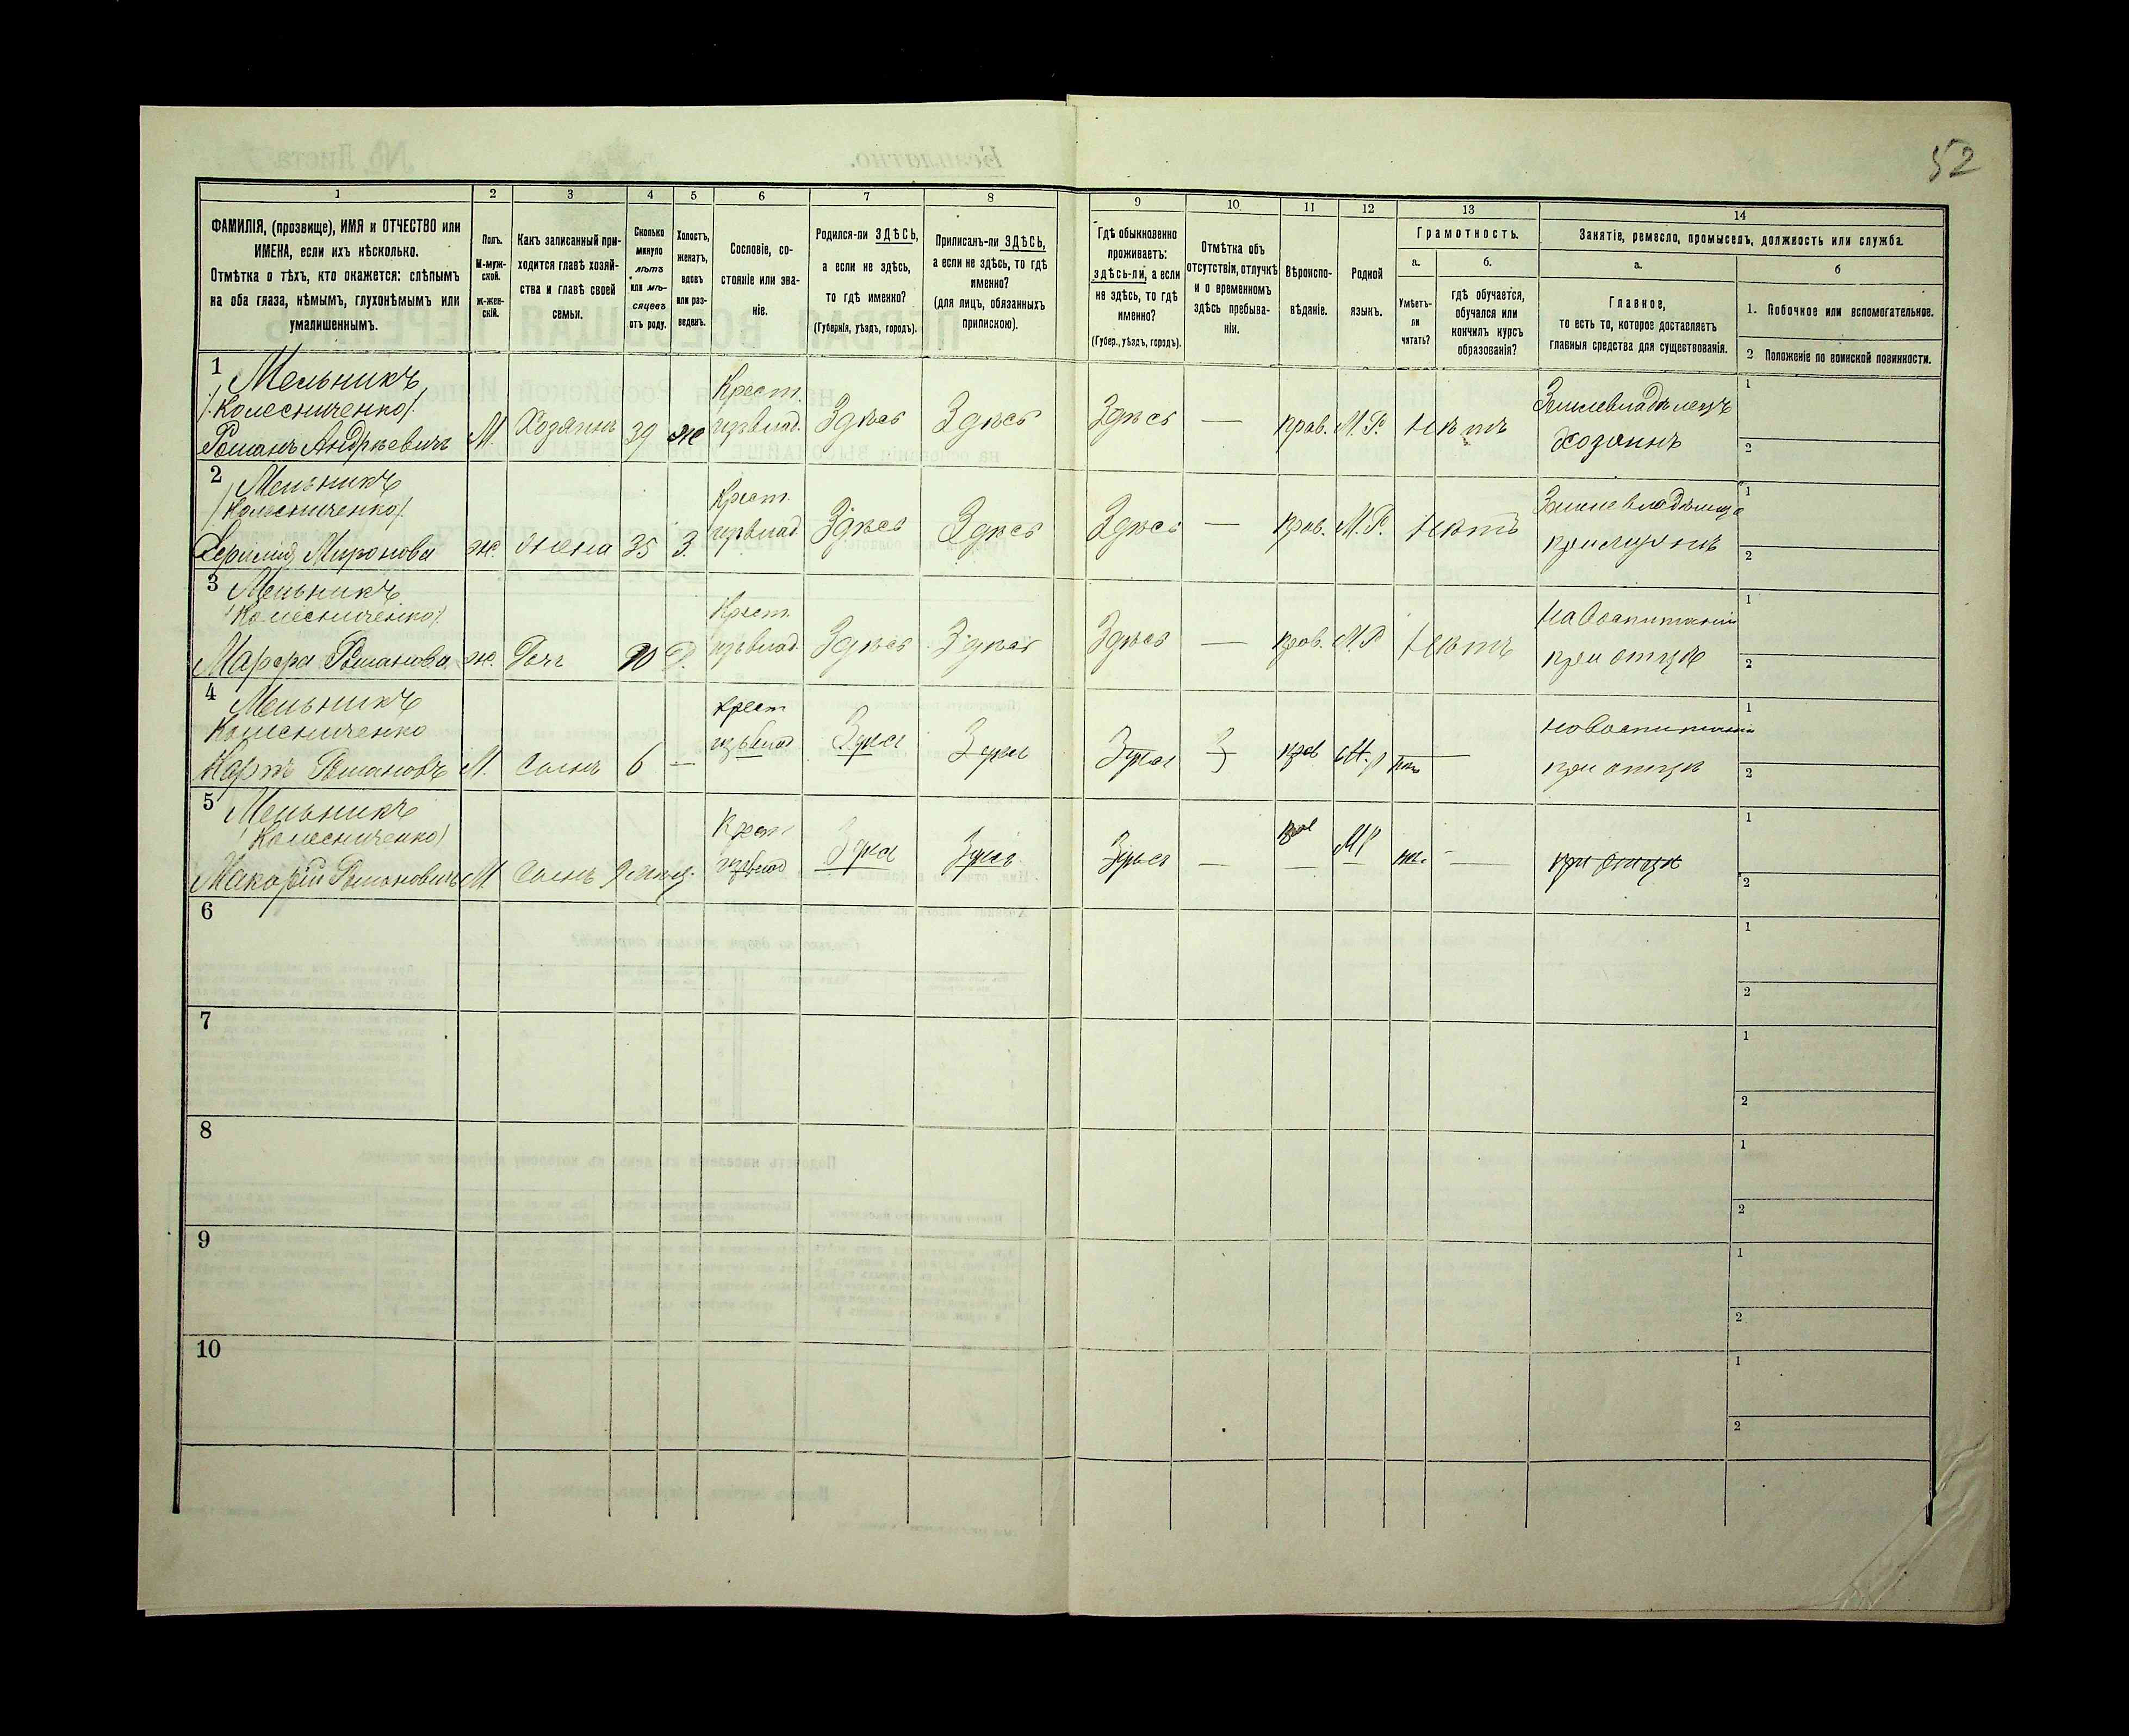 52
1 2 3 4 5 6 7 8 9 10 11 12 13 14
ФАМИЛІЯ, (прозвище), ИМЯ и ОТЧЕСТВО или
ИМЕНА, если ихъ нѣсколько.
Отмѣтка о тѣхъ, кто окажется: слѣпымъ
на оба глаза, нѣмымъ, глухонѣмымъ или
умалишеннымъ.
Полъ.
М-муж-
ской.
ж-жен-
скій.
Какъ записанный при-
ходится главѣ хозяй-
ства и главѣ своей
семьи.
Сколько
минуло
лѣтъ
или мѣ-
сяцевъ
отъ роду.
Холостъ,
женатъ,
вдовъ
или раз-
веденъ.
Сословіе, со-
стояніе или зва-
ніе.
Родился-ли ЗДѢСЬ,
а если не здѣсь,
то гдѣ именно?
(Губернія, уѣздъ, городъ).
Приписанъ-ли ЗДѢСЬ,
а если не здѣсь, то гдѣ
именно?
(для лицъ, обязанныхъ
припискою).
Гдѣ обыкновенно
проживаетъ:
здѣсь-ли, а если
не здѣсь, то гдѣ
именно?
(Губер., уѣздъ, городъ).
Отмѣтка объ
отсутствіи, отлучкѣ
и о временномъ
здѣсь пребыва-
ніи.
Вѣроиспо-
вѣданіе.
Родной
языкъ.
Грамотность.
а.
Умѣетъ-
ли
читать?
б.
гдѣ обучается,
обучался или
кончилъ курсъ
образованія?
Занятіе, ремесло, промыселъ, должность или служба.
а.
Главное,
то есть то, которое доставляетъ
главныя средства для существованія.
б
1. Побочное или вспомогательное.
2 Положеніе по воинской повинности.
1 Мельникъ
/Колесниченко/
Романъ Андрѣевичъ М. Хозяинъ 39 ж
Крест.
Здѣсь Здѣсь Здѣсь — прав. М. Р. Нѣтъ
Землевладѣлецъ
Хозяинъ
1
2
2 Мельникъ
/Колесниченко/
Мировова ж. жена 35 З.
Крест.
Здѣсь Здѣсь Здѣсь — прав. М. Р. Нѣтъ
1
2
3 Мельникъ
/Колесниченко/
Марфа Романова ж. Дочь 10 Д.
Крест.
Здѣсь Здѣсь Здѣсь — прав. М. Р. Нѣтъ
На воспитаніи
при отцѣ
1
2
4 Мельникъ
Колесниченко
Карпъ Романовъ М. Сынъ 6 —
Крест
Здѣсь Здѣсь Здѣсь прав М. р
на воспитаніи
при отцѣ
1
2
5 Мельникъ
/Колесниченко/
Макарій Романовичъ М Сынъ
Крест
Здѣсь Здѣсь Здѣсь — М Р
при отцѣ
1
2
6
1
2
7
1
2
8
1
2
9
1
2
10
1
2